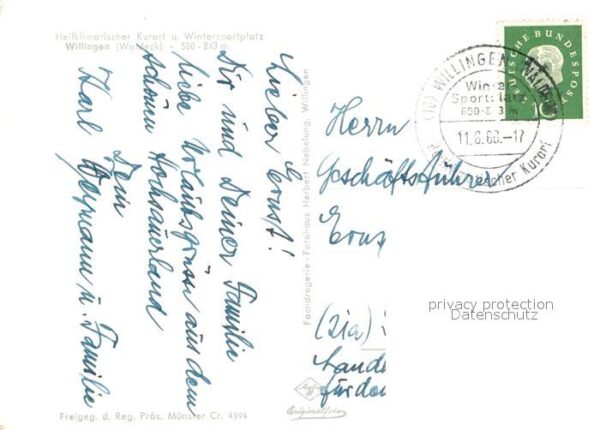 Heilklimatischer Kurort u. Wintersportplatz
Willingen (Waldeck) - 580 - 843 m
Lieber Ernst!
Dir und Deiner Familie
liebe Urlaubsgrüsse aus dem
schönen Hochsauerland
Dein
Karl u. Familie
Fachdrogerie - Fotohaus Herbert Nebelung, Willingen
Freigeg. d. Reg. Präs. Münster Cr. 4394
Originalfoto
DEUTSCHE BUNDESPOST
10
WILLINGEN (WALDECK)
11.8.60.-17
Kurort
Herrn
Geschäftsführer
Erns
(21a)
Lands
für den
privacy protection
Datenschutz